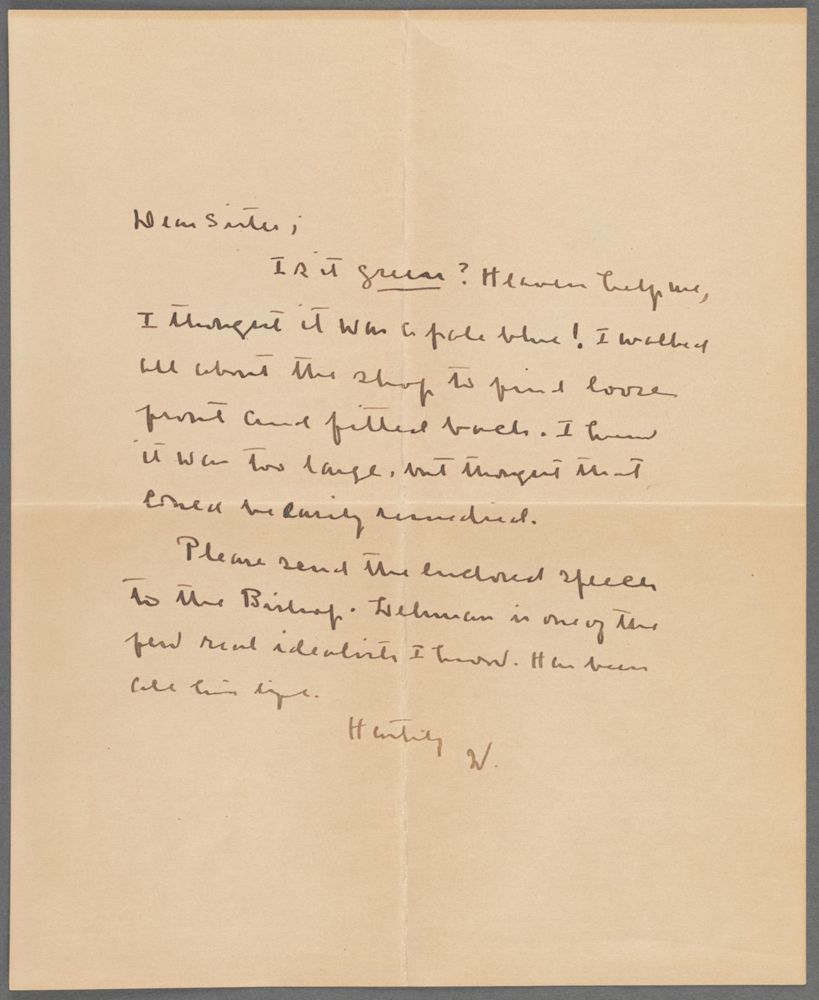 Dear Sister;
Is it green? Heaven help me,
I thought it was a pale blue! I walked
all about the shop to find loose
front and fitted back. I knew
it was too large, but thought that
could be easily remedied.
Please send the enclosed speech
to the Bishop. Lehman is one of the
few real idealists I know. Has been
all his life.
Hastily
W.